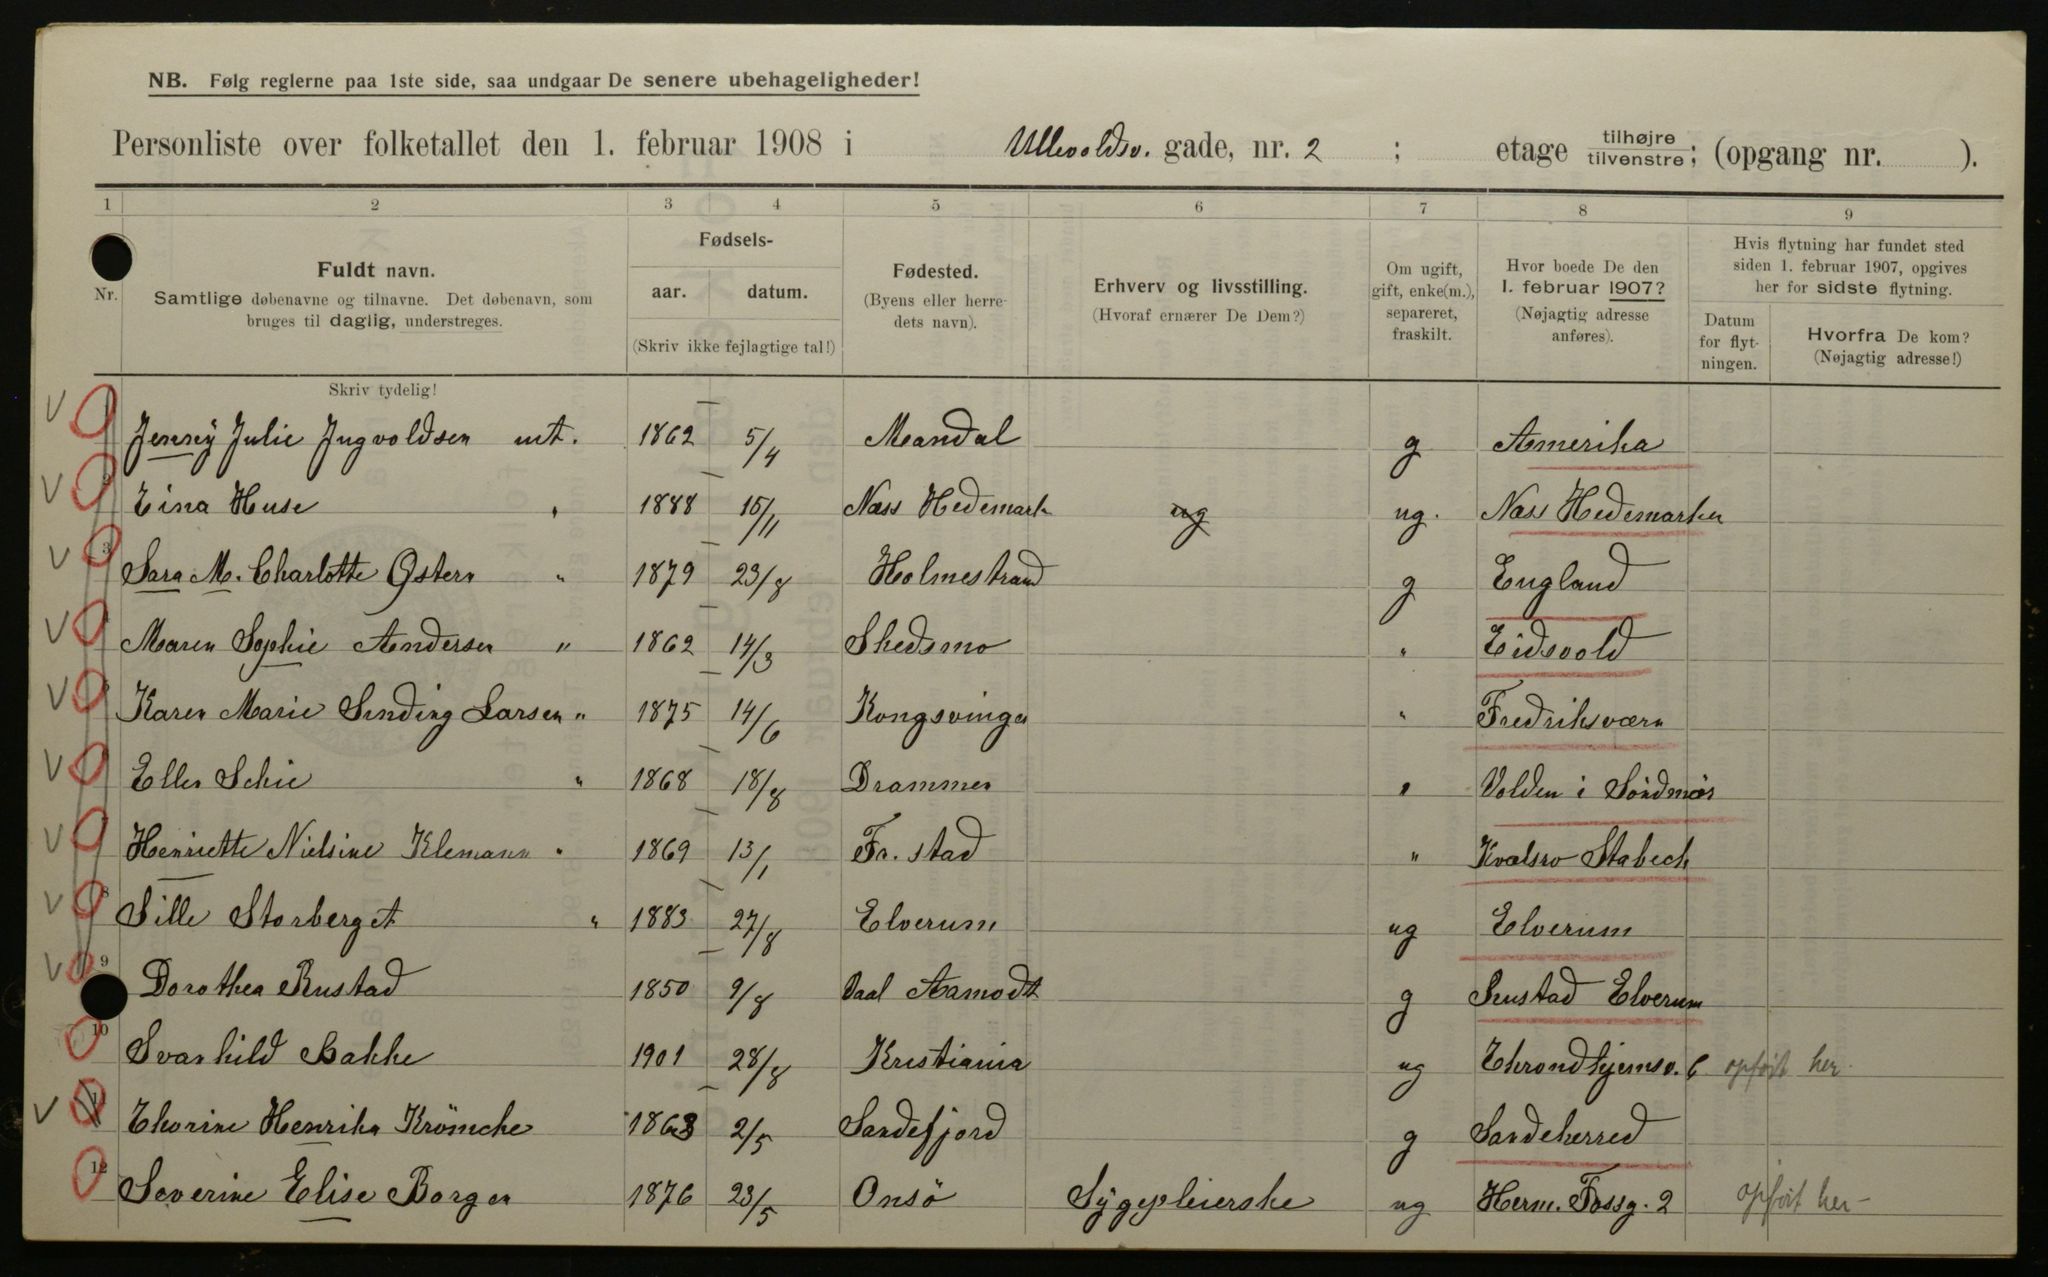 NB. Følg reglerne paa 1ste side, saa undgaar De senere ubehageligheder!
Personliste over folketallet den 1. februar 1908 i Ullevoldsv. gade, nr. 2 ; etage tilhøjre tilvenstre; (opgang nr. ).
1 2 3 4 5 6 7 8 9
Nr.
Fuldt navn.
Samtlige døbenavne og tilnavne. Det døbenavn, som
bruges til daglig, understreges.
Skriv tydelig!
Fødsels-
aar. datum.
(Skriv ikke fejlagtige tal!)
Fødested.
(Byens eller herre-
dets navn).
Erhverv og livsstilling.
(Hvoraf ernærer De Dem?)
Om ugift,
gift, enke(m.),
separeret,
fraskilt.
Hvor boede De den
1. februar 1907?
(Nøjagtig adresse
anføres).
Hvis flytning har fundet sted
siden 1. februar 1907, opgives
her for sidste flytning.
Datum
for flyt-
ningen.
Hvorfra De kom?
(Nøjagtig adresse!)
1 Jenny Julie Ingvoldsen mt. 1862 5/4 Mandal g Amerika
2 Eina Huse " 1888 15/11 Næss Hedemark ug ug. Næss Hedemarken
3 Sara M. Charlotte Østern " 1879 23/8 Holmestrand g England
4 Maren Sophie Andersen " 1862 14/3 Skedsmo " Eidsvold
5 Karen Marie Sinding Larsen " 1875 14/6 Kongsvinger " Fredriksværn
6 Ellen Schie " 1868 18/8 Drammen " Volden i Söndmör
7 Henriette Nielsine Klemann " 1869 13/1 Fr. stad " Kvalsro Stabeck
8 Sille Storberget " 1883 27/8 Elverum ug Elverum
9 Dorothea Rustad 1850 9/8 Aamodt g Rustad Elverum
10 Svanhild Bakke 1901 28/8 Kristiania ug Throndhjemsv. 6 opført her
11 Thorine Henrika Krömcke 1863 2/5 Sandefjord g Sandeherred
12 Severine Elise Borgen 1876 23/5 Onsö Sygepleierske ug Herm. Fossg. 2 opført her-